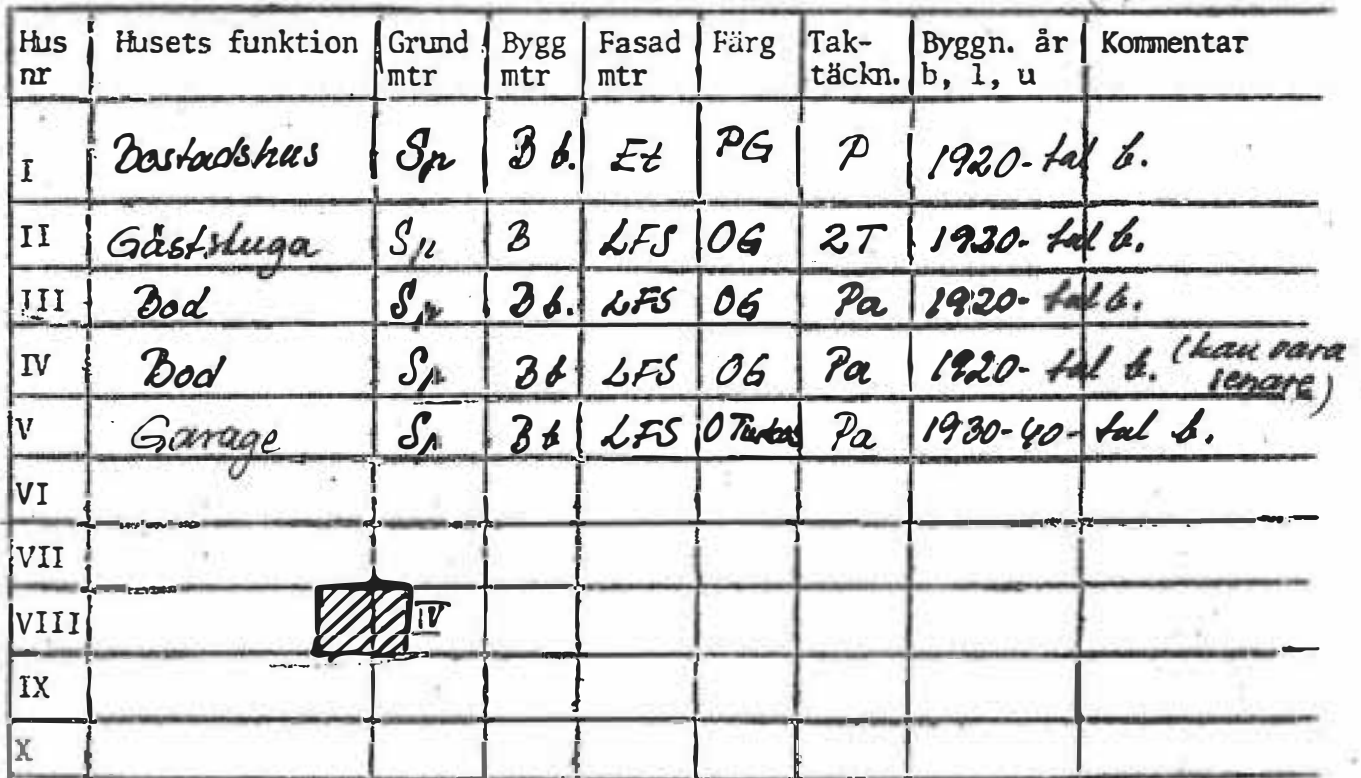 Hus nr | Husets funktion | Grund mtr | Bygg mtr | Fasad mtr | Färg | Tak- täckn. | Byggn. år b, l, u | Kommentar
I | Bostadshus | Sp | B b. | Et | PG | P | 1920-tal b.
II | Gäststuga | Sp | B | LFS | OG | 2T | 1930-tal b.
III | Bod | Sp | B b. | LFS | OG | Pa | 1920-tal b.
IV | Bod | Sp | B b | LFS | OG | Pa | 1920-tal b. (kan vara senare)
V | Garage | Sp | B b | LFS | O Turkos | Pa | 1930-40-tal b.
VI
VII
VIII | IV
IX
X